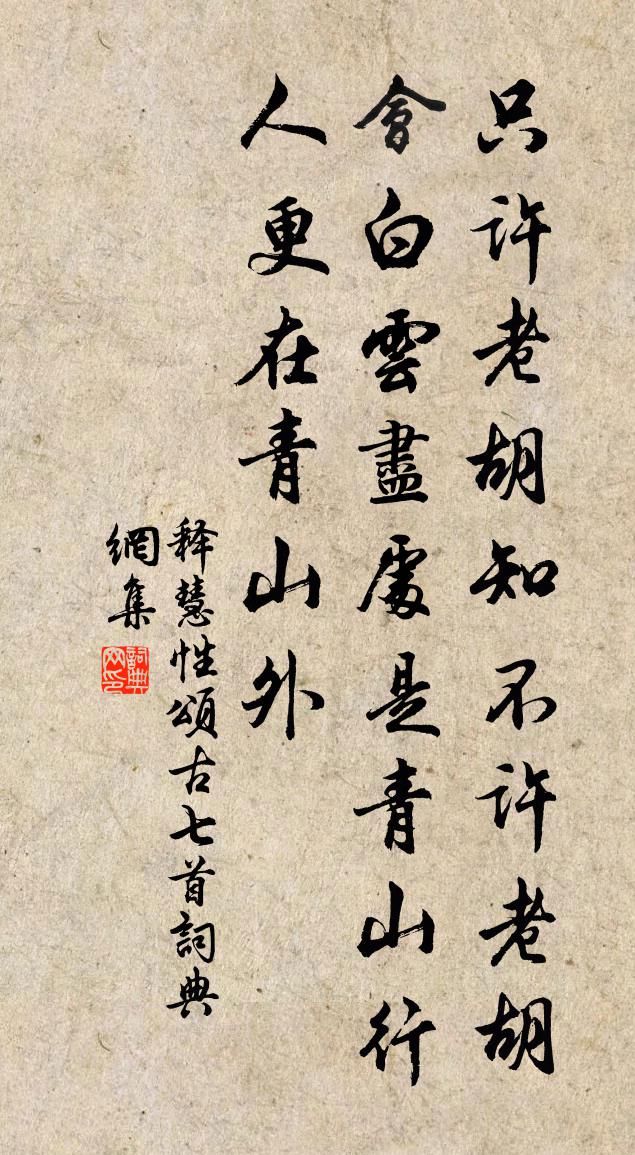 只許老胡知不許老胡
會白雲盡處是青山行
人更在青山外
释慧性頌古七首詞典
網集
詞典
网印